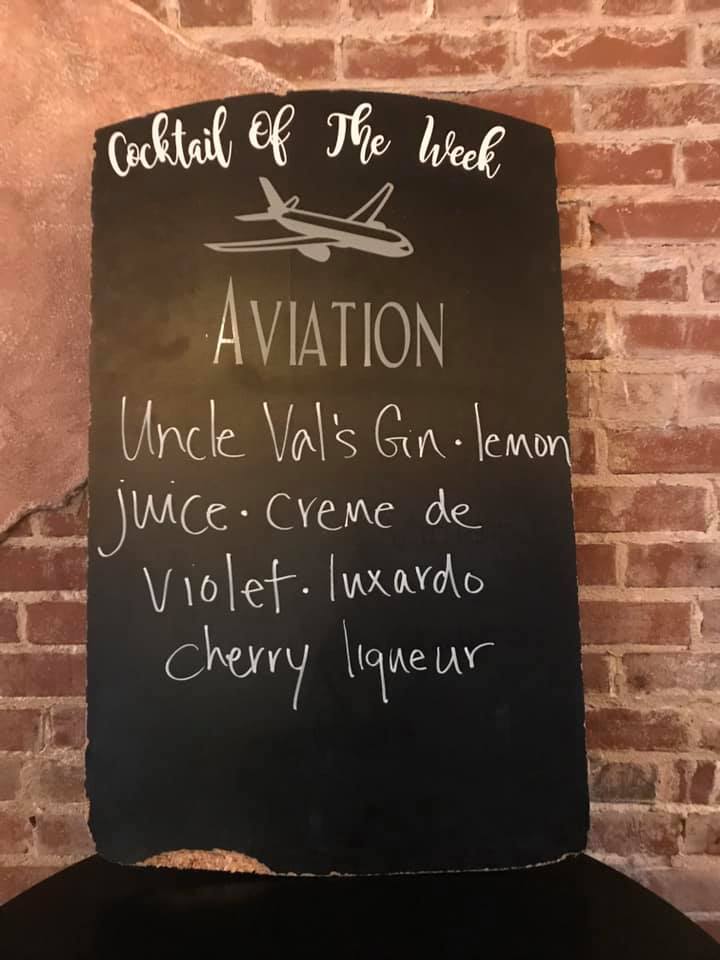 Cocktail Of The Week
AVIATION
Uncle Val's Gin · lemon
juice · creme de
violet · luxardo
cherry liqueur